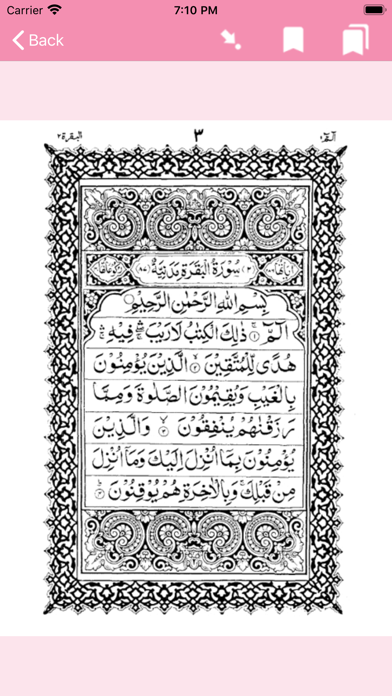 Carrier 7:10 PM
Back
البقرة ٢ ٣ الٓمّٓ ١
(٢) سُوْرَةُ الْبَقَرَةِ مَدَنِيَّةٌ (٨٧)
بِسْمِ اللهِ الرَّحْمٰنِ الرَّحِيْمِ
الٓمّٓ ۚ ١ ذٰلِكَ الْكِتٰبُ لَا رَيْبَ ۛ فِيْهِ ۛ
هُدًى لِّلْمُتَّقِيْنَ ۙ ٢ الَّذِيْنَ يُؤْمِنُوْنَ
بِالْغَيْبِ وَيُقِيْمُوْنَ الصَّلٰوةَ وَمِمَّا
رَزَقْنٰهُمْ يُنْفِقُوْنَ ۙ ٣ وَالَّذِيْنَ
يُؤْمِنُوْنَ بِمَآ اُنْزِلَ اِلَيْكَ وَمَآ اُنْزِلَ
مِنْ قَبْلِكَ ۚ وَبِالْاٰخِرَةِ هُمْ يُوْقِنُوْنَ ؕ ٤